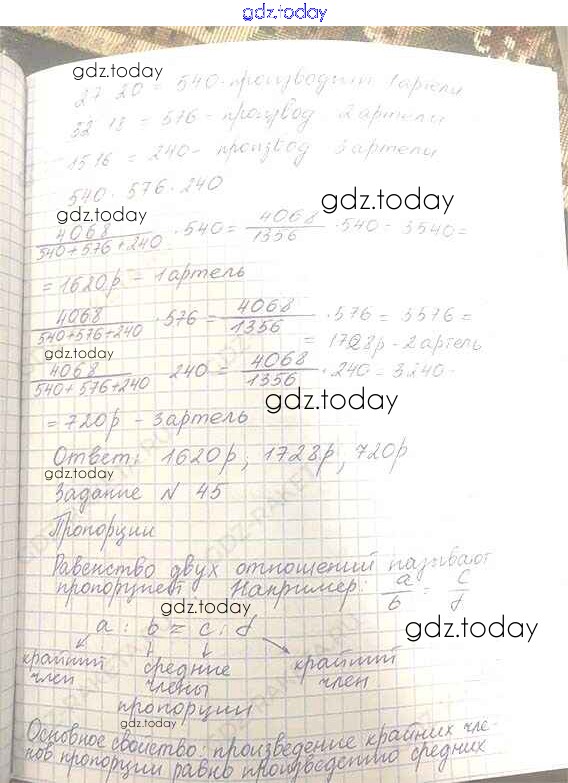 gdz.today
gdz.today
27 20 = 540 - производит 1 артели
32 18 = 576 - произвед 2 артели
15 16 = 240 - произвед 3 артели
540 · 576 · 240
gdz.today
gdz.today
4068 / 540+576+240 · 540 = 4068 / 1356 · 540 = 3540 =
= 1620р - 1 артель
gdz.today
4068 / 540+576+240 · 576 = 4068 / 1356 · 576 = 3576 =
= 1728р - 2 артель
gdz.today
4068 / 540+576+240 240 = 4068 / 1356 · 240 = 3240 -
gdz.today
= 720р - 3 артель
Ответ: 1620р, 1728р, 720р
gdz.today
Задание N 45
Пропорции
Равенство двух отношений называют
пропорцией Например: a / b = c / d
gdz.today
gdz.today
a : b = c : d
крайний средние крайний
член члены член
пропорции
gdz.today
Основное свойство: произведение крайних чле-
нов пропорции равно произведению средних